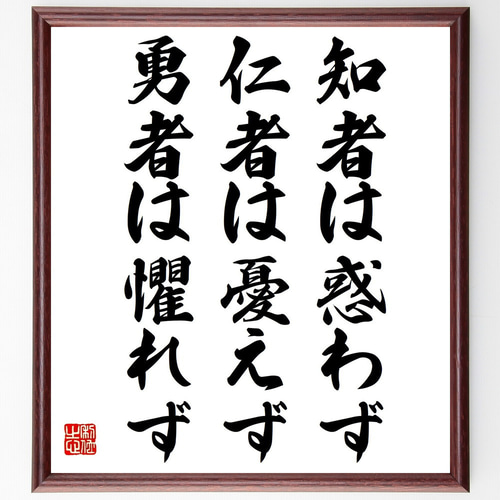 知者は惑わず
仁者は憂えず
勇者は懼れず